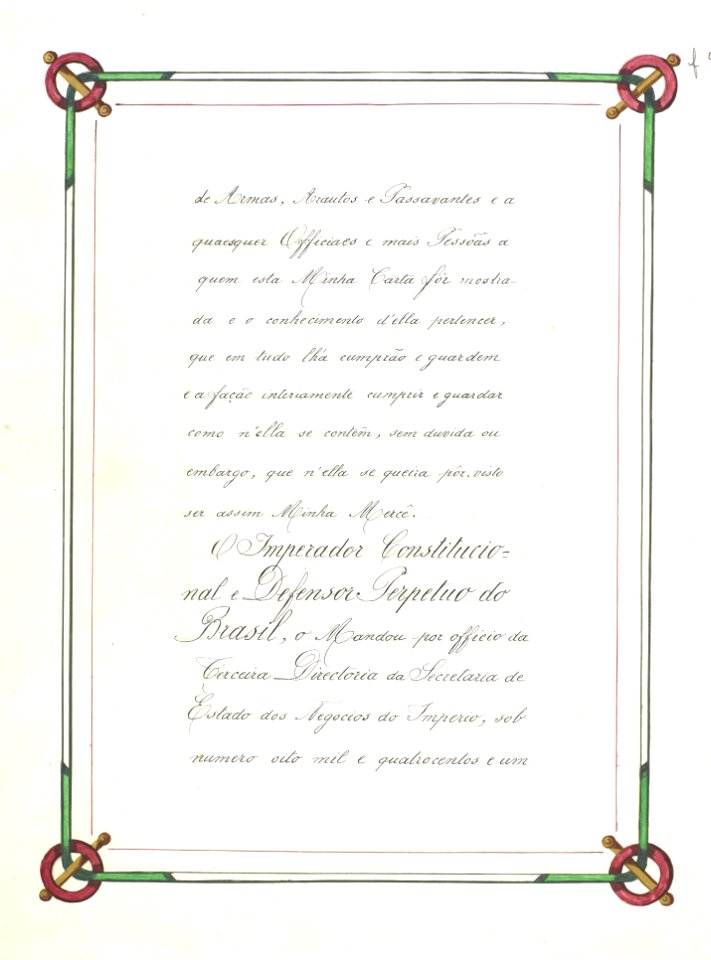 de Armas, Arautos e Passavantes e a
quaesquer Officiaes e mais Pessôas a
quem esta Minha Carta fôr mostra-
da e o conhecimento d'ella pertencer,
que em tudo lhá cumprão e guardem
e a fação inteiramente cumprir e guardar
como n'ella se contêm, sem duvida ou
embargo, que n'ella se queira pôr. visto
ser assim Minha Mercê.
O Imperador Constitucio=
nal e Defensor Perpetuo do
Brasil, o Mandou por officio da
Terceira Directoria da Secretaria de
Estado dos Negocios do Imperio, sob
numero oito mil e quatrocentos e um